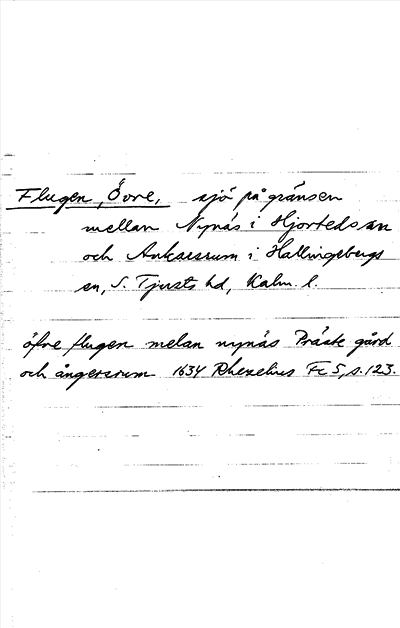 Flugen, Övre, sjö på gränsen
mellan Nynäs i Hjorteds sn
och Ankarsrum i Hallingebergs
sn, S. Tjusts hd, Kalm. l.
öfre flugen melan nynäs Präste gård
och ångersrum 1634 Rhezelius Fc 5, s. 123.